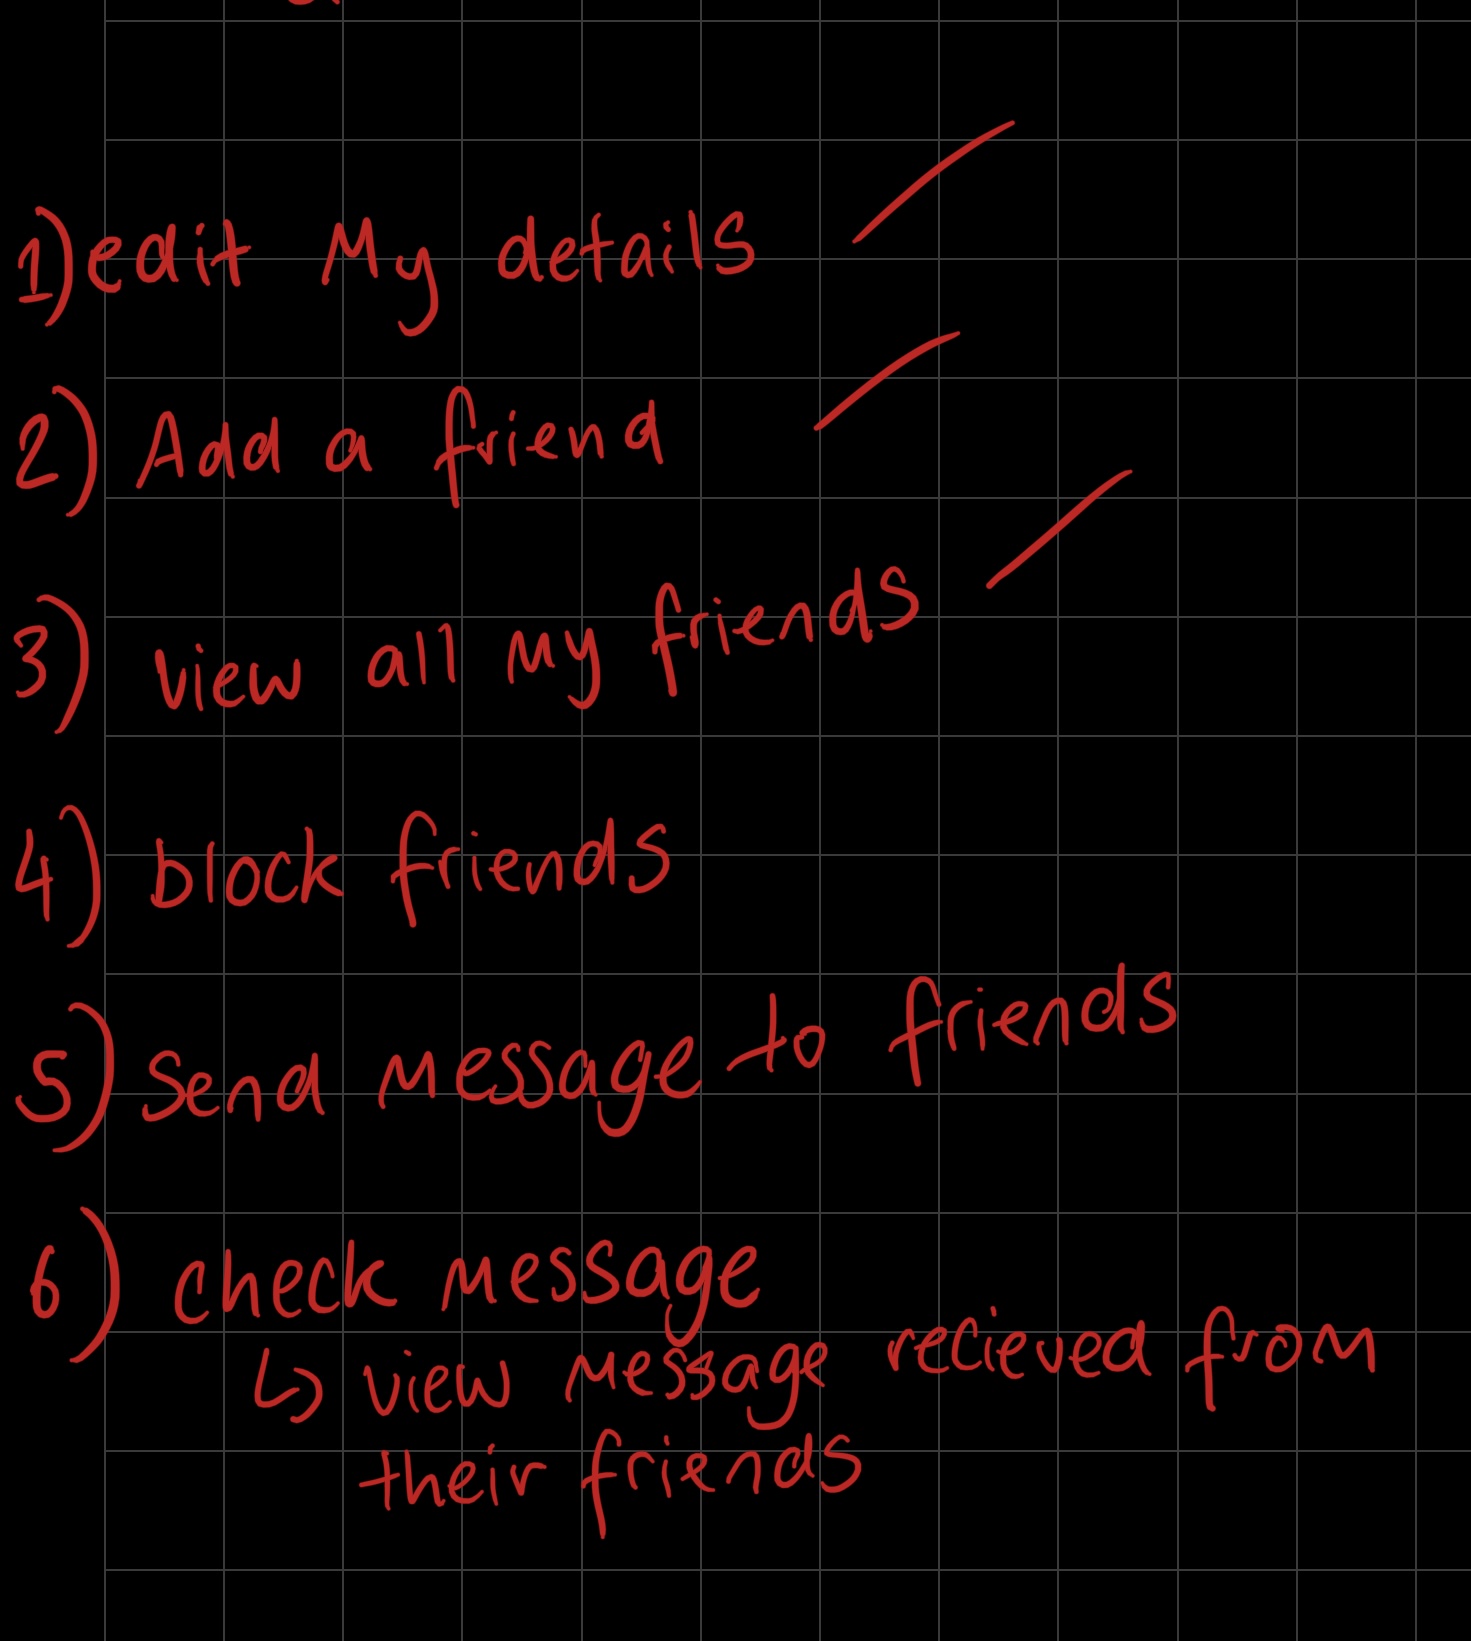 1) edit My details
2) Add a friend
3) view all my friends
4) block friends
5) Send message to friends
6) check message
↳ view message recieved from
their friends